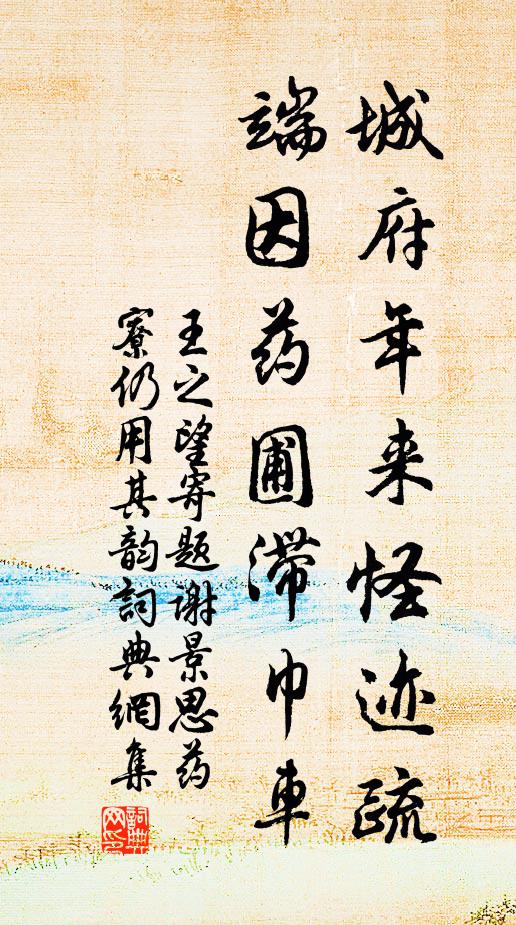 城府年来怪迹疏
端因药圃滞巾車
王之望寄题谢景思药
寮仍用其韵詞典網集
詞典网印